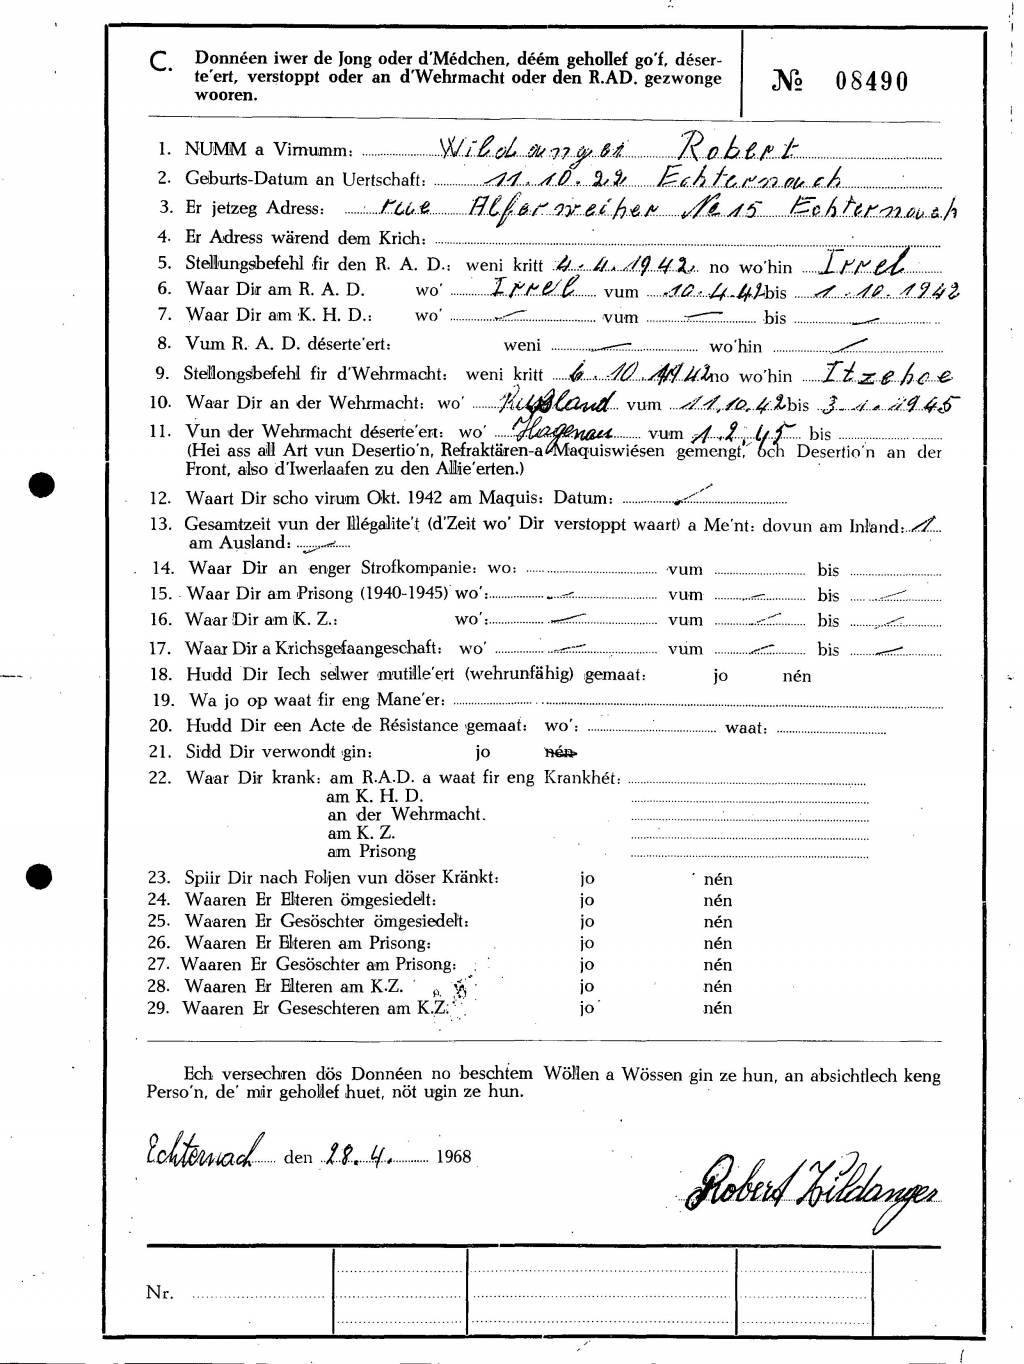 C. Donnéen iwer de Jong oder d'Médchen, déém gehollef go'f, déser-
te'ert, verstoppt oder an d'Wehrmacht oder den R.AD. gezwonge
wooren.
№ 08490
1. NUMM a Virnumm: Wildanger Robert
2. Geburts-Datum an Uertschaft: 11.10.22 Echternach
3. Er jetzeg Adress: rue Alferweiher No 15 Echternach
4. Er Adress wärend dem Krich:
5. Stellungsbefehl fir den R. A. D.: weni kritt 4.4.1942. no wo'hin Irrel
6. Waar Dir am R. A. D. wo' Irrel vum 10.4.42 bis 1.10.1942
7. Waar Dir am K. H. D.: wo' — vum — bis —
8. Vum R. A. D. déserte'ert: weni — wo'hin —
9. Stellongsbefehl fir d'Wehrmacht: weni kritt 6.10.1942 no wo'hin Itzehoe
10. Waar Dir an der Wehrmacht: wo' Russland vum 11.10.42 bis 3.1.1945
11. Vun der Wehrmacht déserte'ert: wo' Hagenau vum 1.2.45 bis
(Hei ass all Art vun Desertio'n, Refraktären-a Maquiswiésen gemengt, och Desertio'n an der
Front, also d'Iwerlaafen zu den Allie'erten.)
12. Waart Dir scho virum Okt. 1942 am Maquis: Datum: —
13. Gesamtzeit vun der Illégalite't (d'Zeit wo' Dir verstoppt waart) a Me'nt: dovun am Inland: 1
am Ausland: —
14. Waar Dir an enger Strofkompanie: wo: vum bis
15. Waar Dir am Prisong (1940-1945) wo': — vum — bis —
16. Waar Dir am K. Z.: wo': — vum — bis —
17. Waar Dir a Krichsgefaangeschaft: wo' — vum — bis —
18. Hudd Dir Iech selwer mutille'ert (wehrunfähig) gemaat: jo nén
19. Wa jo op waat fir eng Mane'er:
20. Hudd Dir een Acte de Résistance gemaat: wo': waat:
21. Sidd Dir verwondt gin: jo nén
22. Waar Dir krank: am R.A.D. a waat fir eng Krankhét:
am K. H. D.
an der Wehrmacht.
am K. Z.
am Prisong
23. Spiir Dir nach Foljen vun döser Kränkt: jo nén
24. Waaren Er Elteren ömgesiedelt: jo nén
25. Waaren Er Gesöschter ömgesiedelt: jo nén
26. Waaren Er Elteren am Prisong: jo nén
27. Waaren Er Gesöschter am Prisong: jo nén
28. Waaren Er Elteren am K.Z. jo nén
29. Waaren Er Geseschteren am K.Z. jo nén
Ech versechren dös Donnéen no beschtem Wöllen a Wössen gin ze hun, an absichtlech keng
Perso'n, de' mir gehollef huet, nöt ugin ze hun.
Echternach den 28.4. 1968
Robert Wildanger
Nr.